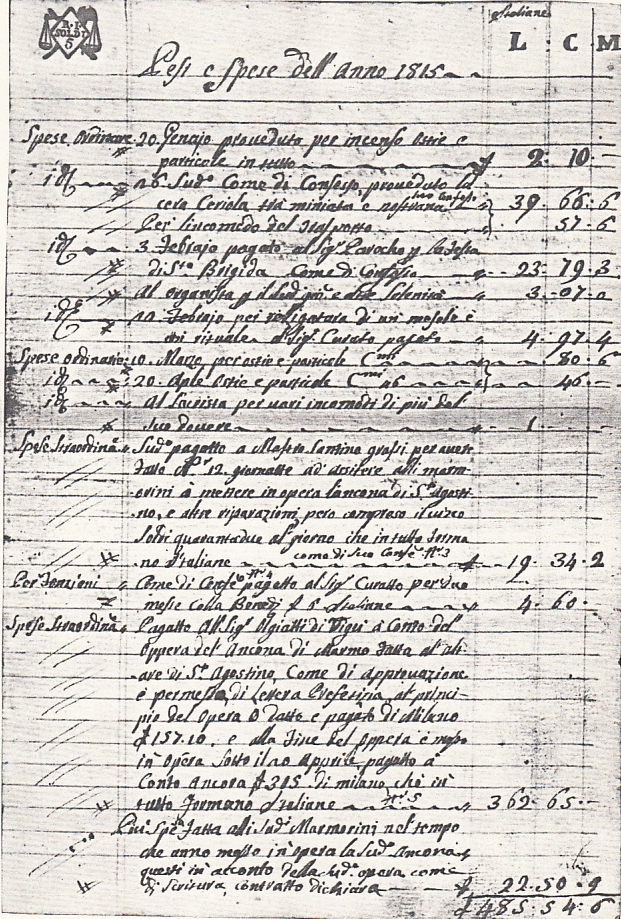 Italiane
R. I.
SOLDI
5
L C M
Pesi e Spese dell'Anno 1815
Spese Ordinarie 20. Genajo proveduto per incenso Ostie e
particole in tutto 2. 10.
26. Sudº Come di Confesso, proveduto la
cera Ceriola, tra miniata e nostrana suo Confesso 39 66. 6
Per l'incomodo del Trasporto 57. 6
3. Febrajo pagato al Sigr Parocho la festa
di Sta Brigida Come di Confesso 23. 79. 3
Al Organista e altre Solenità 3. 07. 0
10. Febrajo per religatura di un mesale e
un rituale al Sigr Curato pagato 4. 97. 4
Spese Ordinarie 10. Marzo per ostie e particole 80. 6
20. Aple Ostie e particole 46.
Al Sacrista per vari incomodi di più del
suo dovere 1
Spese Straordina Sudº pagatto a Mastro Santino grassi per avere
fatto Nº 12. giornatte ad assistere alli marm-
orini à mettere in opera l'ancona di Sto Agosti-
no, e altre riparazioni, pero compreso il vino
soldi quarantadue al giorno che in tutto forma
no d'Italiane come di suo Confes Nº 3 19. 34. 2
Per Fonzioni Come di Confes Nº 4 pagatto al Sigr Curatto per due
messe Colla Benedi 5 Italiane 4. 60.
Spese Straordina Pagatto All Sigr Algiatti di Vigiù à Conto del
oppera del Ancona di Marmo fatta al alt-
are di Sto Agostino, Come di approvazione
e permesso, di Lettera Prefetizia, al princi-
pio del Opera O datto e pagato di Milano
£ 157. 10. e alla fine del oppera è messo
in opera sotto il 20 Apprile pagatto à
Conto Ancora £ 315. di milano, che in
tutto formano d'Italiane Nº 5 362. 65.
Più Spe Fatta alli Sudi Marmorini nel tempo
che anno messo in opera la Suda Ancona,
questi in acconto della Suda opera come
di Scritura, Contratto dichiara £ 22. 50. 9
£ 485. 54. 6